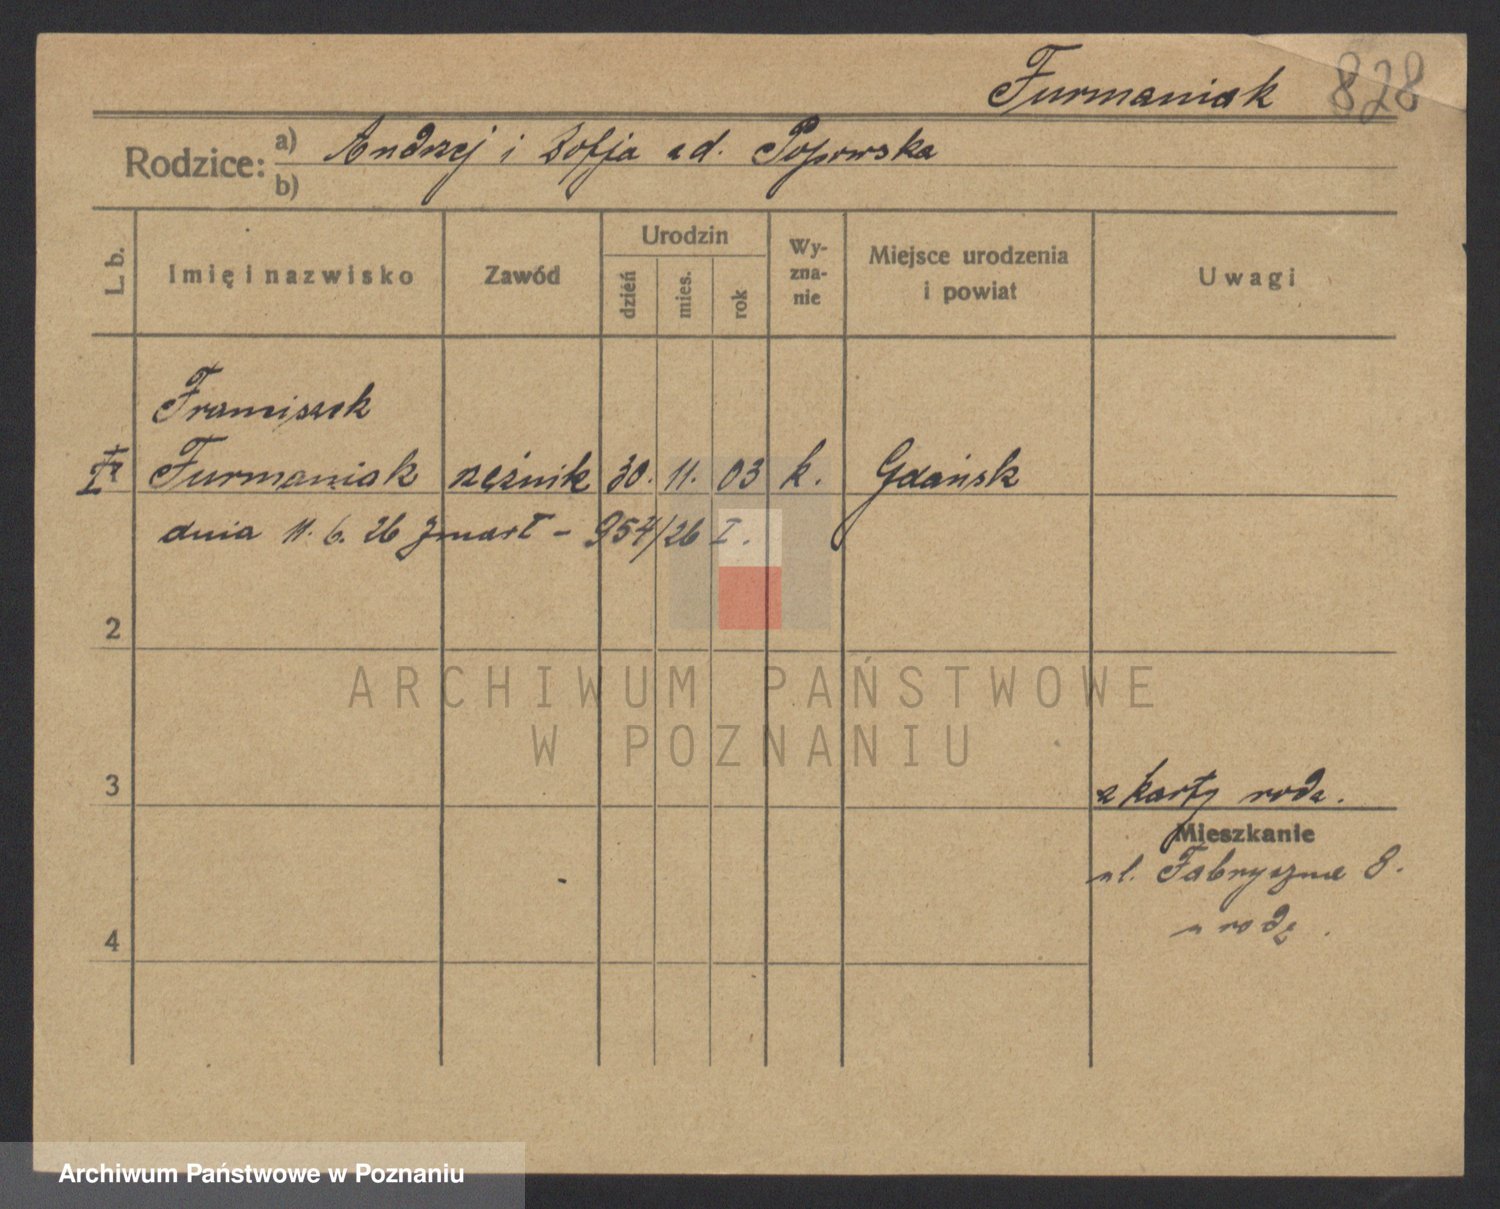 Furmaniak 828
Rodzice: a) Andrzej i Zofja zd. Popowska
b)
L. b.
Imię i nazwisko
Zawód
Urodzin
dzień
mies.
rok
Wy-
zna-
nie
Miejsce urodzenia
i powiat
Uwagi
Franciszek
Furmaniak rzeźnik 30. 11. 03 k. Gdańsk
dnia 11. 6. 26 zmarł - 954/26 I.
2
ARCHIWUM PAŃSTWOWE
W POZNANIU
3
z karty rodz.
Mieszkanie
ul. Fabryczna 8.
4
Archiwum Państwowe w Poznaniu